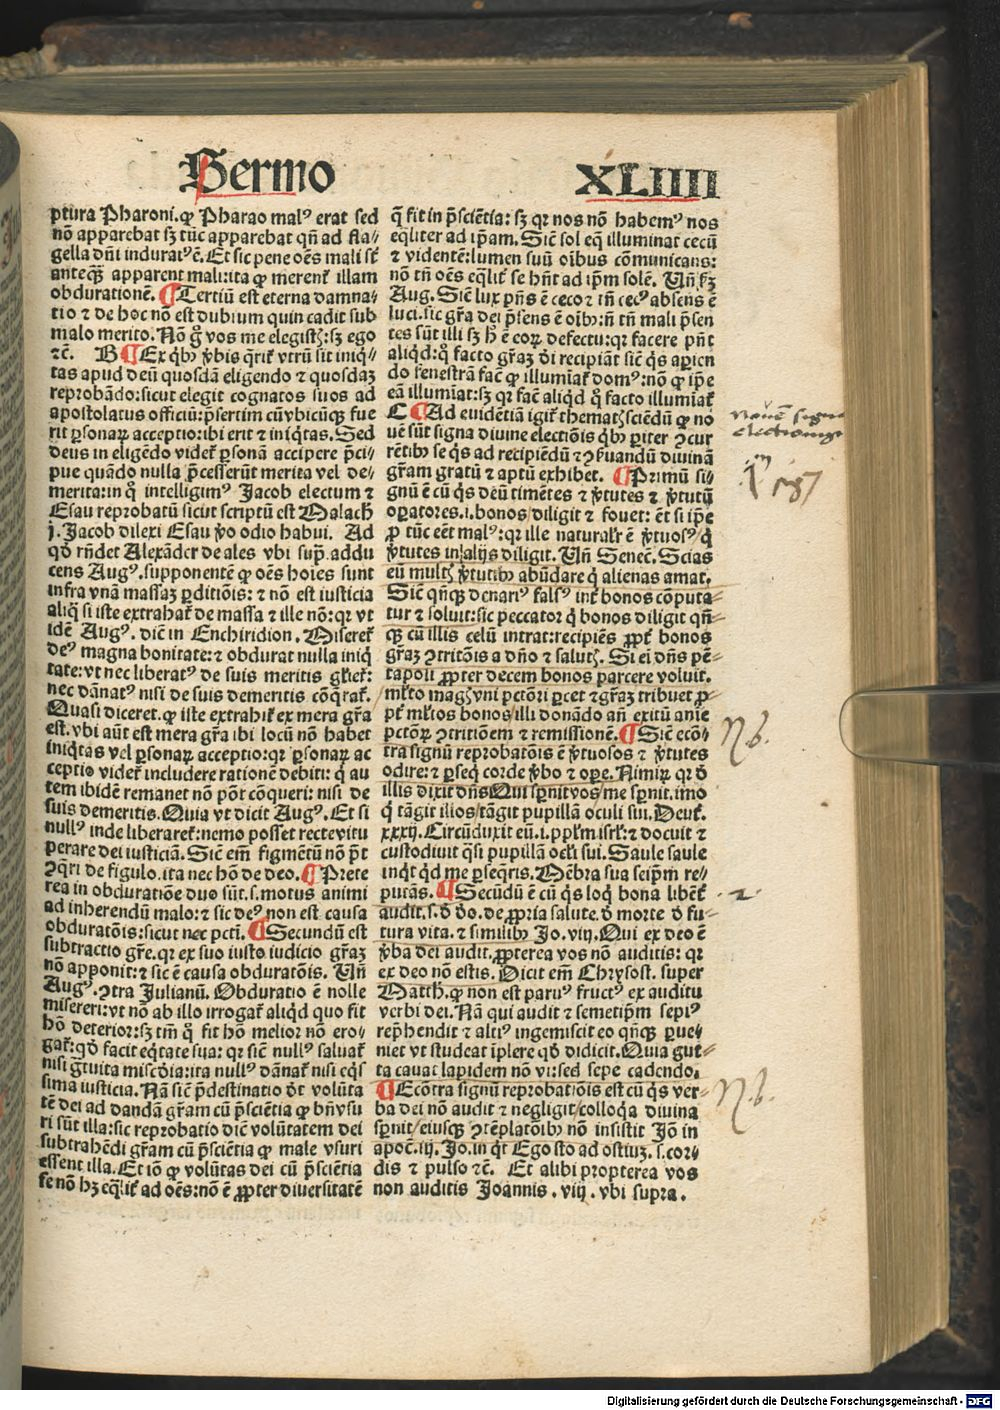 Sermo XLIIII
ptura Pharoni.ꝙ Pharao malꝰ erat sed
nō apparebat sꝫ tūc apparebat qñ ad fla⸗
gella dñi induratꝰ ē. Et sic pene oēs mali st̄
anteq̄ꝫ apparent mali:ita ꝙ merent᷑ illam
obdurationē. ¶Tertiū est eterna damna⸗
tio ⁊ de hoc nō est dubium quin cadit sub
malo merito. Nō g̊ vos me elegistꝭ:sꝫ ego
⁊c̄. B ¶Ex qͥbꝫ v̄bis q̄rit᷑ vtrū sit iniq̄⸗
tas apud deū quosdā eligendo ⁊ quosdaꝫ
reprobādo:sicut elegit cognatos suos ad
apostolatus officiū:p̄sertim cū vbicūqꝫ fue
rit ꝑsonaꝝ acceptio:ibi erit ⁊ iniq̄tas. Sed
deus in eligēdo videt᷑ ꝑsonā accipere p̄ci⸗
pue quādo nulla p̄cesserūt merita vel de⸗
merita:in q̊ intelligimꝰ Jacob electum ⁊
Esau reprobatū sicut scriptū est Malach
j. Jacob dilexi Esau v̄o odio habui. Ad
qd̓ rn̄det Alexāder de ales vbi supͣ. addu
cens Augꝰ. supponentē ꝙ oēs hoies sunt
infra vnā massaꝫ ꝑditiōis: ⁊ nō est iusticia
aliq̄ si iste extrahat᷑ de massa ⁊ ille nō: qꝛ vt
idē Augꝰ. dic̄ in Enchiridion. Miseret᷑
deꝰ magna bonitate: ⁊ obdurat nulla iniq̄
tate: vt nec liberatꝰ de suis meritis gl̓iet᷑:
nec dānatꝰ nisi de suis demeritis cōq̄rat᷑.
Quasi diceret. ꝙ iste extrahit᷑ ex mera gr̄a
est. vbi aūt est mera gr̄a ibi locū nō habet
iniq̄tas vel ꝑsonaꝝ acceptio: qꝛ ꝑsonaꝝ ac
ceptio videt᷑ includere rationē debiti: q̄ au
tem ibidē remanet nō pōt cōqueri: nisi de
suis demeritis. Quia vt dicit Augꝰ. Et si
nullꝰ inde liberaret᷑: nemo posset recte vitu
perare dei iusticiā. Sic̄ em̄ figmētū nō p̄t
ꝯq̄ri de figulo. ita nec hō de deo. ¶Prete
rea in obduratiōe duo sūt. s. motus animi
ad inherendū malo: ⁊ sic deꝰ non est causa
obduratōis: sicut nec pctī. ¶Secundū est
subtractio gr̄e. qꝛ ex suo iusto iudicio gr̄aꝫ
nō apponit: ⁊ sic ē causa obduratōis. Vn̄
Augꝰ. ꝯtra Julianū. Obduratio ē nolle
misereri: vt nō ab illo irrogat᷑ aliqd̓ quo fit
hō deterior: sꝫ tm̄ q̊ fit hō melior nō ero⸗
gat᷑: qd̓ facit eq̄tate sua: qꝛ sic̄ nullꝰ saluat᷑
nisi gͣtuita mīcdia: ita nullꝰ dānat᷑ nisi eq̄s
sima iusticia. Nā sic̄ p̄destinatio dt̓ volūta
tē dei ad dandā gr̄am cū p̄sciētia ꝙ bn̄ vsu
ri sūt illa: sic reprobatio dic̄ volūtatem dei
subtrahēdi gr̄am cū p̄sciētia ꝙ male vsuri
essent illa. Et iō ꝙ volūtas dei cū p̄sciētia
se nō hꝫ eq̄lit᷑ ad oēs: nō ē ꝓpter diuersitatē
q̄ fit in p̄sciētia: sꝫ qꝛ nos nō habemꝰ nos
eq̄liter ad ip̄am. Sic̄ sol eq̄ illuminat cecū
⁊ videntē: lumen suū oībus cōmunicans:
nō tn̄ oēs eq̄lit᷑ se hn̄t ad ip̄m solē. Vn̄ sꝫ
Aug. Sic̄ lux pn̄s ē ceco ⁊ tn̄ cecꝰ absens ē
luci. sic gr̄a dei p̄sens ē oībꝫ: nō tn̄ mali p̄sen
tes sūt illi sꝫ h̓ ē eoꝝ defectu: qꝛ facere pn̄t
aliqd̓: q̊ facto gr̄aꝫ dei recipiāt sic̄ qͥs aperien
do fenestrā fac̄ ꝙ illumīat᷑ domꝰ: nō ꝙ ip̄e
eā illumīat: sꝫ qꝛ fac̄ aliqd̓ q̊ facto illumīat᷑
C ¶Ad euidētiā igit᷑ thematꝭ sciēdū ꝙ no
uē sūt signa diuine electiōis qͥbꝫ ꝑiter ꝯcur
rētibꝫ se qͥs ad recipiēdū ⁊ ꝯseruandū diuinā
gr̄am gratū ⁊ aptū exhibet. ¶Primū si⸗
gnū ē cū qͥs deū timētes ⁊ v̓tutes ⁊ v̓tutū
oꝑatores. i. bonos diligit ⁊ fouet: ēt si ip̄e
ꝓ tūc eēt malꝰ: qꝛ ille naturalr̄ ē v̓tuosꝰ q̄
v̓tutes in alijs diligit. Vn̄ Senec̄. Scias
eū multꝭ v̓tutibꝫ abūdare q̄ alienas amat.
Sic̄ qn̄qꝫ denariꝰ falsꝰ int᷑ bonos cōputa⸗
tur ⁊ soluit: sic peccator q̄ bonos diligit qn̄⸗
qꝫ cū illis celū intrat: recipiēs ꝓpt᷑ bonos
gr̄aꝫ ꝯtritōis a dn̄o ⁊ salutꝭ. Si ei̓ dn̄s pē⸗
tapoli ꝓpter decem bonos parcere voluit.
ml̓to magꝭ vni pctōri ꝑcet ⁊ gr̄aꝫ tribuet ꝓ⸗
pt᷑ ml̓tos bonos illi donādo an̄ exitū anīe
pctōꝝ ꝯtritiōem ⁊ remissionē. ¶Sic̄ ecō⸗
tra signū reprobatōis ē v̓tuosos ⁊ v̓tutes
odire: ⁊ ꝑseq̄ corde v̓bo ⁊ oꝑe. Nimiꝝ qꝛ d̓
illis dixit dn̄s Qui sꝑnit vos me sꝑnit. imo
q̄ tāgit illos tāgit pupillā oculi sui. Deut᷑.
xxxij. Circūduxit eū. i. pplm̄ isrl̓: ⁊ docuit ⁊
custodiuit qͣsi pupillā ocl̓i sui. Saule saule
inq̄t qͥd me ꝑseq̄ris. Mēbra sua seip̄m re⸗
putās. ¶Secūdū ē cū qͥs loq̄ bona libēt᷑
audit. s. d̓ deo. de ꝓpria salute. d̓ morte d̓ fu⸗
tura vita. ⁊ similibꝫ Jo. viij. Qui ex deo ē
v̓ba dei audit. ꝓpterea vos nō auditis: qꝛ
ex deo nō estis. Dicit em̄ Chrysost. super
Matth. ꝙ non est paruꝰ fructꝰ ex auditu
verbi dei. Nā qui audit ⁊ semetip̄m sepiꝰ
rep̄hendit ⁊ altiꝰ ingemiscit eo qn̄qꝫ ꝑue⸗
niet vt studeat īplere qd̓ didicit. Quia gut⸗
ta cauat lapidem nō vi: sed sepe cadendo.
¶Ecōtra signū reprobatiōis est cū qͥs ver⸗
ba dei nō audit ⁊ negligit colloq̄a diuina
sꝑnit eiusqꝫ ꝯtēplatōibꝫ nō insistit Jō in
apoc. iij. Jo. inq̄t Ego sto ad ostiuꝫ. s. cor⸗
dis ⁊ pulso ⁊c̄. Et alibi propterea vos
non auditis Joannis. viij. vbi supra.
Novē signa
electionis
Nb.
2.
Nb.
Digitalisierung gefördert durch die Deutsche Forschungsgemeinschaft - DFG